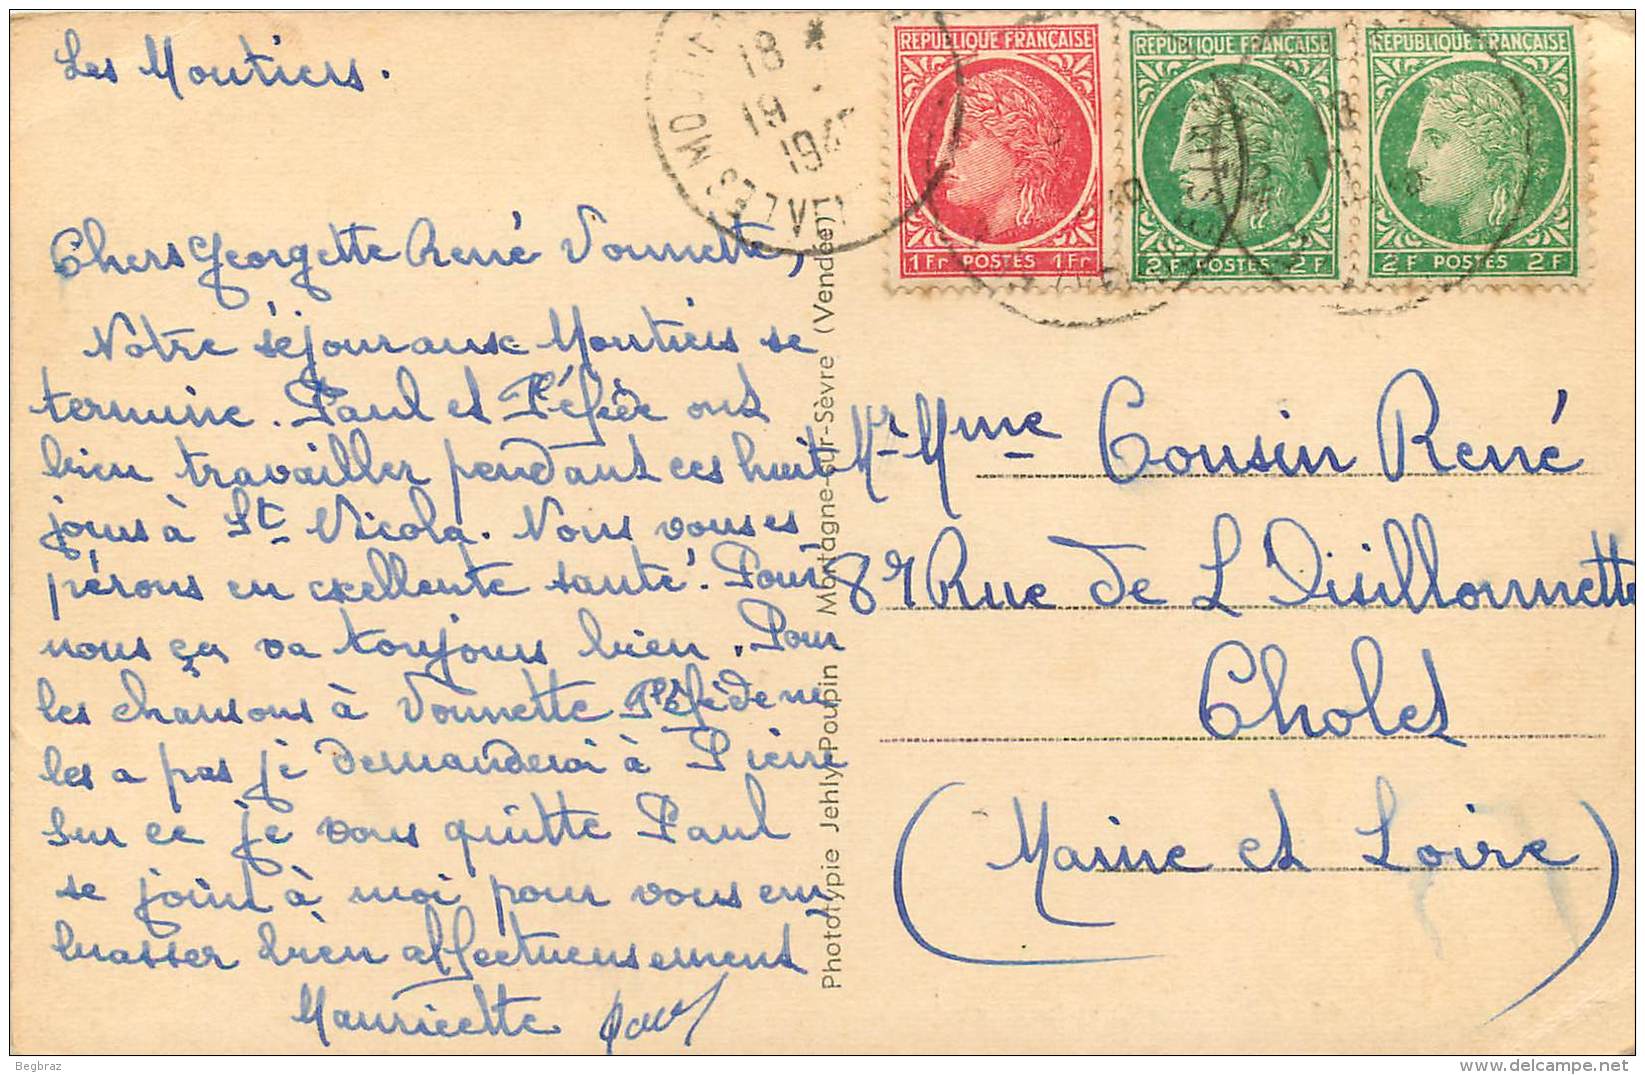 Les Moutiers.
Chers Georgette René Vonnette,
Notre séjour aux Moutiers se
termine. Paul et P'éfède ont
bien travailler pendant ces huit
jours à St Nicola. Nous vous es
pérons en excellente santé. Pour
nous ça va toujours bien. Pour
les chansons à Vonnette P'éfède ne
les a pas je demanderai à Pierre
sur ce je vous quitte Paul
se joint à moi pour vous em
brasser bien affectueusement
Mauricette Paul
Phototypie Jehly-Poupin Mortagne-sur-Sèvre (Vendée)
18 *
19
194
LES MOUTIERS
REPUBLIQUE FRANÇAISE
1 Fr POSTES 1 Fr
REPUBLIQUE FRANÇAISE
2 F POSTES 2 F
REPUBLIQUE FRANÇAISE
2 F POSTES 2 F
Mr Mme Cousin René
8 r Rue de L Oisillonnette
Cholet
(Maine et Loire)
Begbraz
delcampe.net